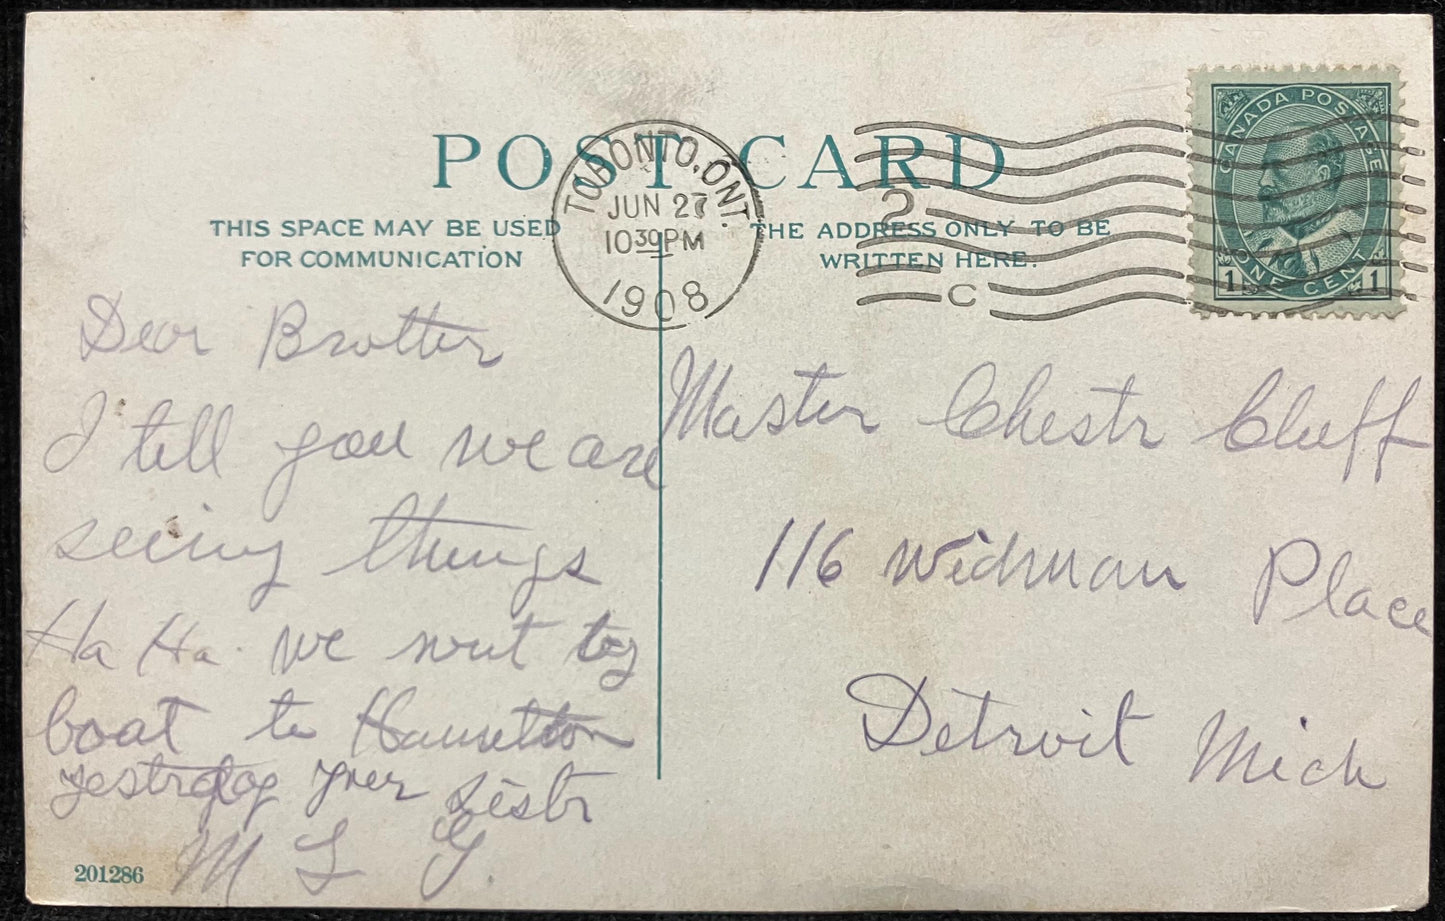 POST CARD
THIS SPACE MAY BE USED
FOR COMMUNICATION
THE ADDRESS ONLY TO BE
WRITTEN HERE.
TORONTO, ONT.
JUN 27
10 30 PM
1908
2
C
CANADA POSTAGE
1 ONE CENT 1
Dear Brotter
I tell you we are
seeing things
Ha Ha. we went by
boat to Hamilton
yestrday yner sistr
M L G.
Master Chestr Cluff
116 Widman Place
Detroit Mich
201286